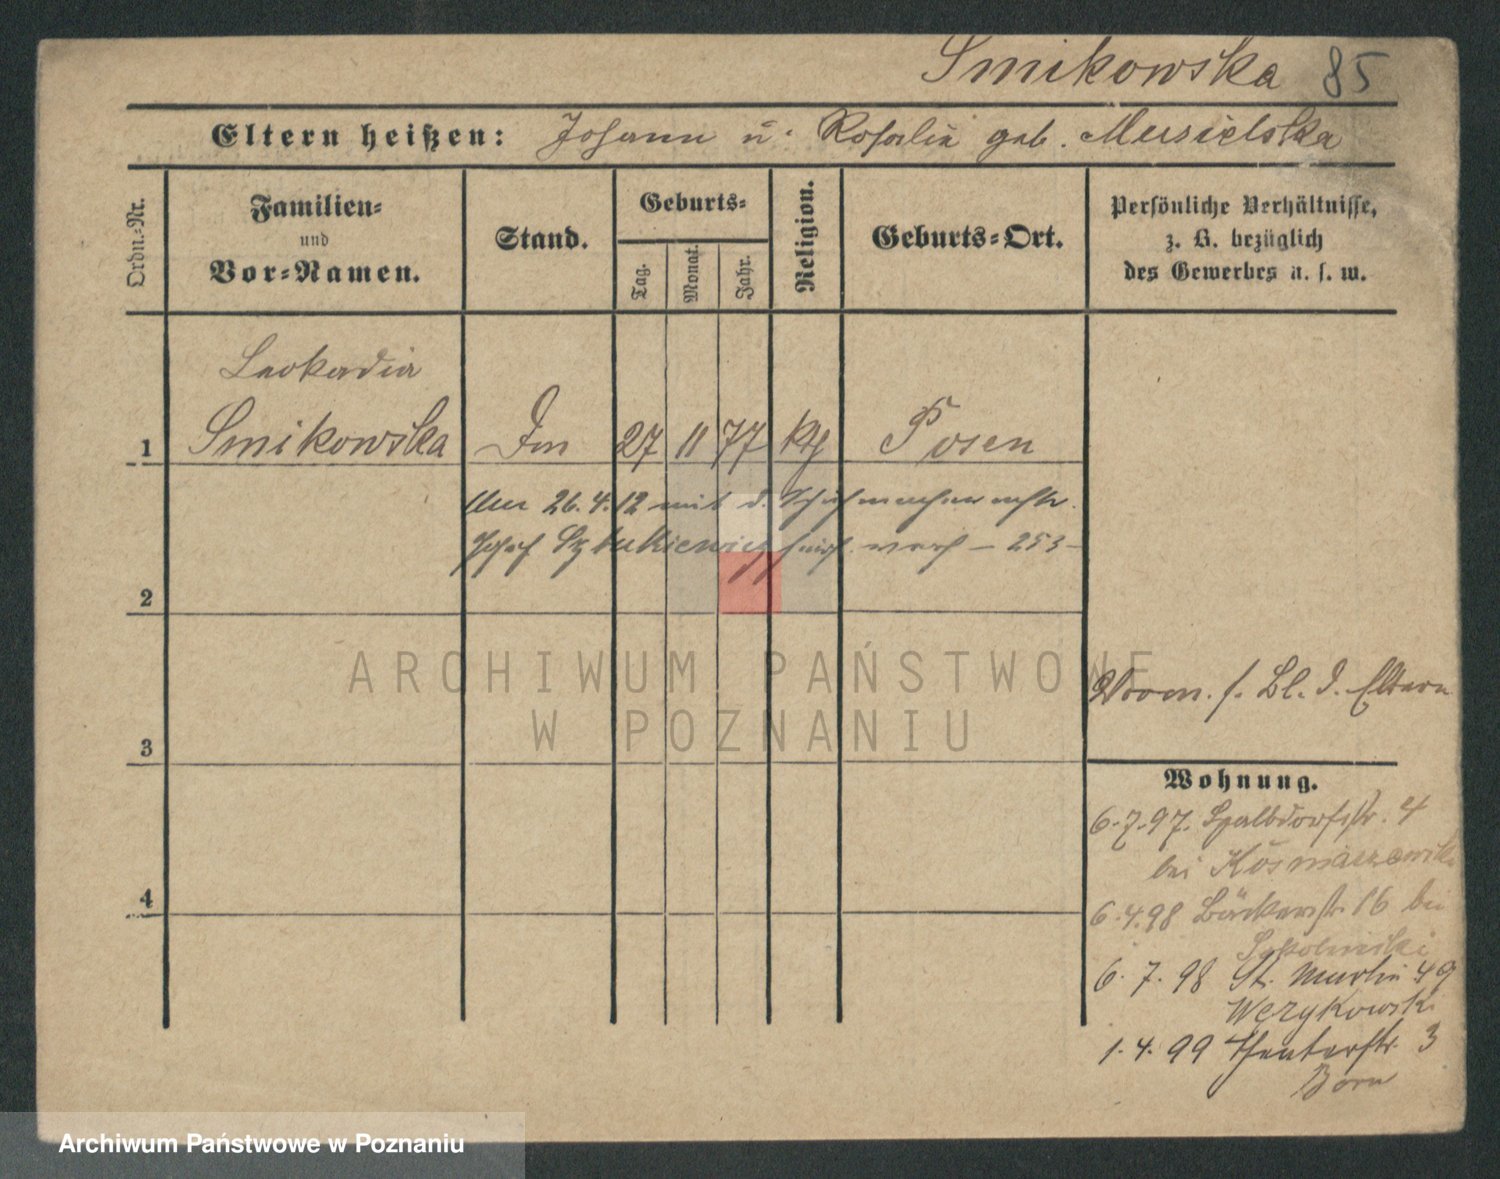 Smikowska 85
Eltern heißen: Johann u. Rosalie geb. Musielska
Ordn.-Nr.
Familien- und Vor-Namen.
Stand.
Geburts-
Tag. Monat. Jahr.
Religion.
Geburts-Ort.
Persönliche Verhältnisse,
z. B. bezüglich
des Gewerbes u. s. w.
Leokadia
1 Smikowska 27 11 77 kth Posen
26.4.12 mit d. Schuhmacher
Josef 253
2
ARCHIWUM PAŃSTWOWE
W POZNANIU
3
4
Vorm. s. Bl. d. Eltern
Wohnung.
6.7.97. 4
bei
6.4.98 Bäckerstr. 16 bei
6.7.98 St. Martin 49
Werykowski
1.4.99 Theaterstr. 3
Born
Archiwum Państwowe w Poznaniu